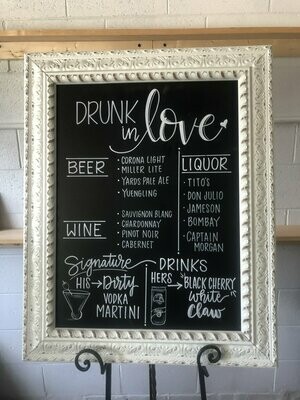 DRUNK
in love
BEER
• CORONA LIGHT
• MILLER LITE
• YARDS PALE ALE
• YUENGLING
WINE
• SAUVIGNON BLANC
• CHARDONNAY
• PINOT NOIR
• CABERNET
LIQUOR
• TITO'S
• DON JULIO
• JAMESON
• BOMBAY
• CAPTAIN
MORGAN
Signature DRINKS
HIS → Dirty
VODKA
MARTINI
HERS → BLACK CHERRY
White
CLAW